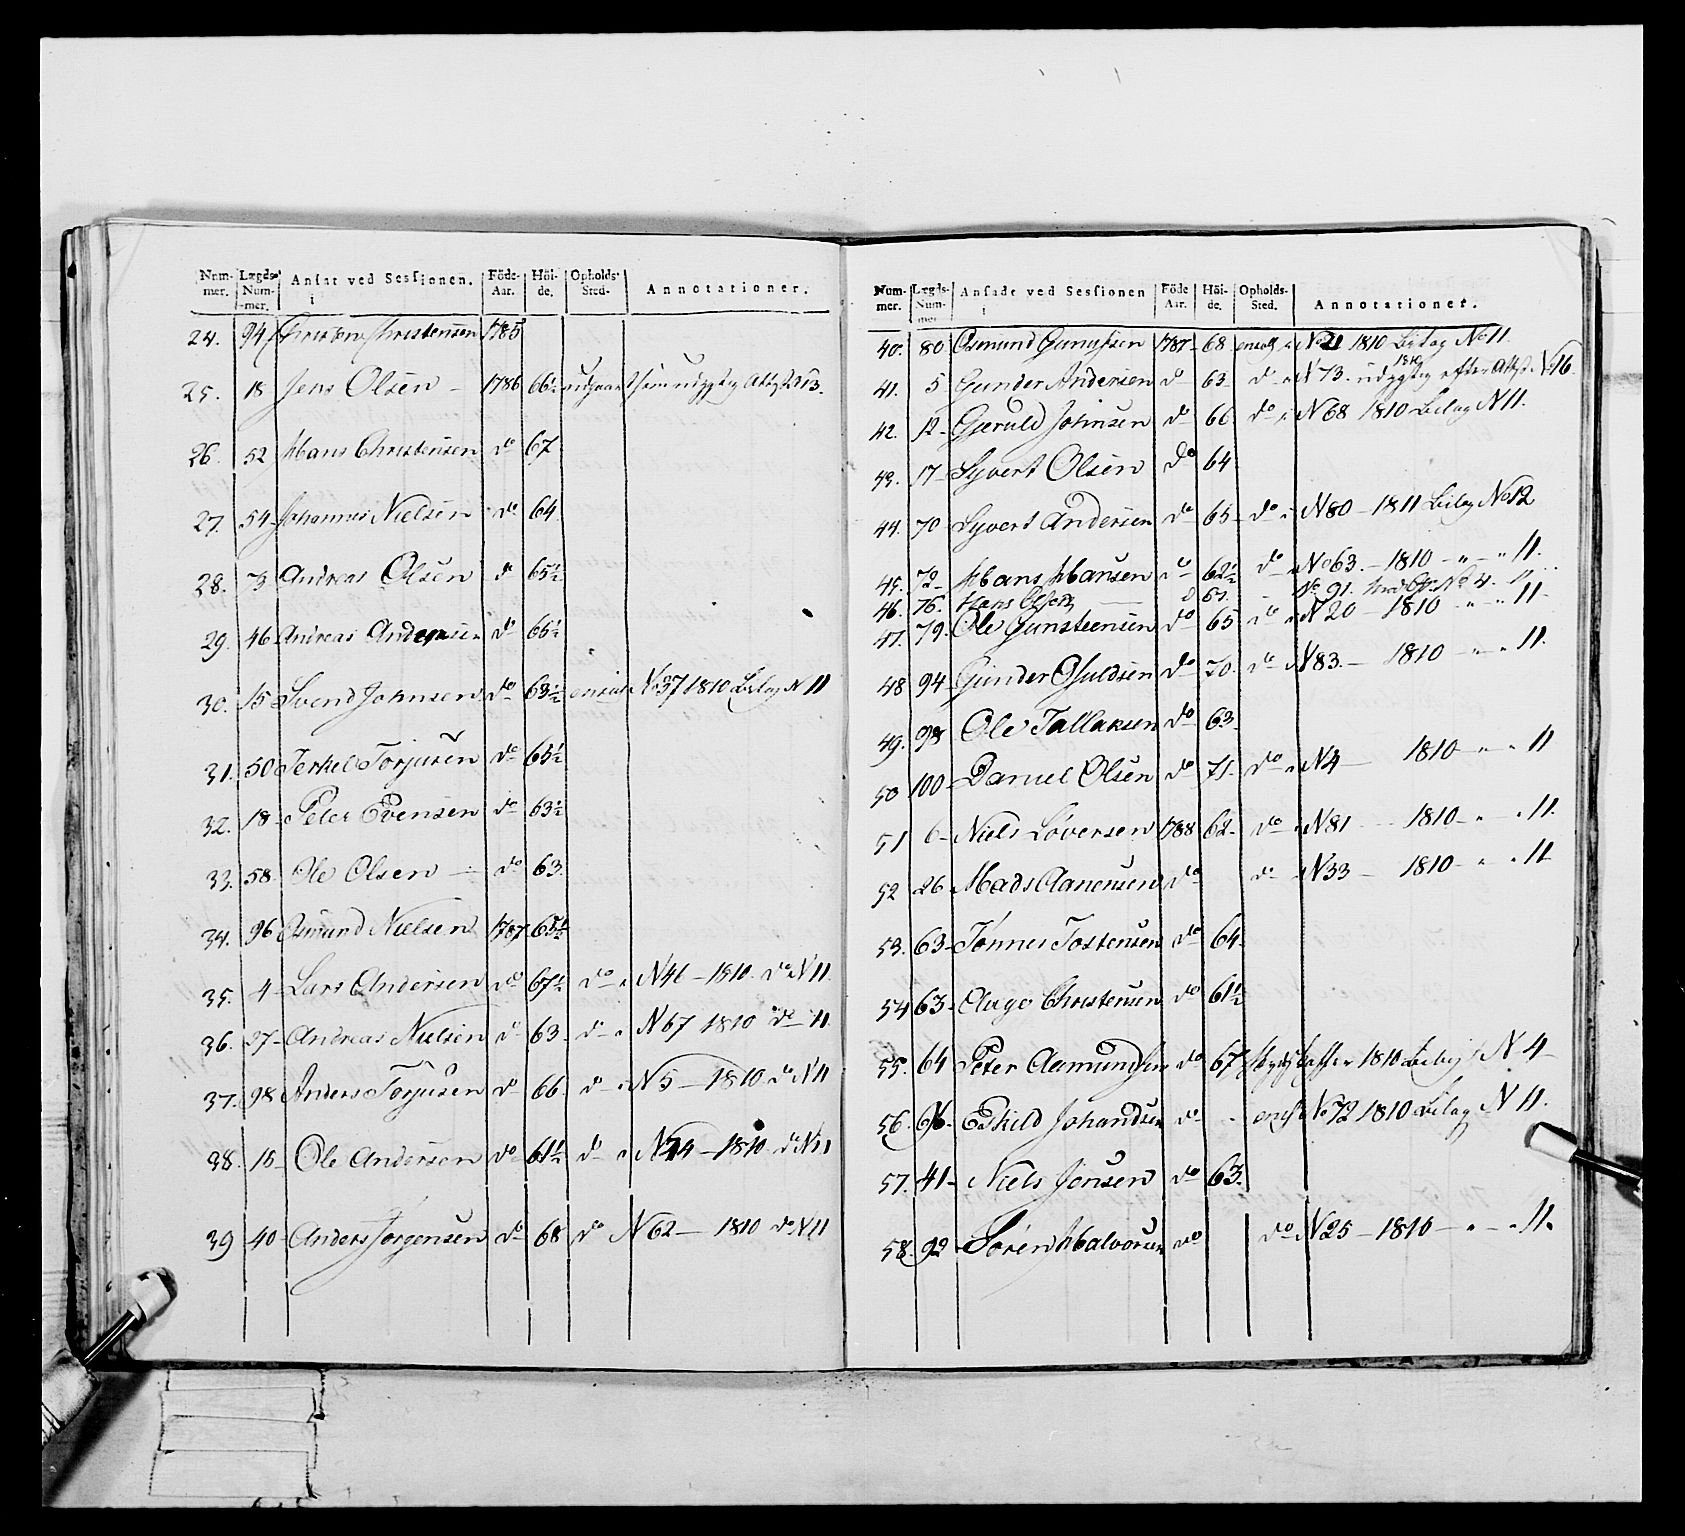 Num- Lægds- Ansat ved Sessionen. Föde- Höi- Opholds-
mer. Num- Aar. de. Sted. Annotationer.
mer.
24. 94 Christen Christensen 1785
25. 18 Jens Olsen 1786 66½ udgaaet som udygtig Attest 13.
26. 52 Hans Christensen do 67
27. 54 Johannes Nielsen do 64
28. 73 Andreas Olsen do 65½
29. 46 Andreas Andersen do 66½
30. 15 Svend Johnsen do 63½ ensat No 37 1810 Bilag N 11
31. 50 Terkel Torjusen do 65½
32. 18 Peter Evensen do 63½
33. 58 Ole Olsen do 63
34. 96 Osmund Nielsen 1787 65½
35. 4 Lars Andersen do 67½ do N 46 - 1810 do N 11
36. 37 Andreas Nielsen do 63 do N 67 1810 do 11
37. 98 Anders Torjusen do 66 do N 5 - 1810 do N 11
38. 15 Ole Andersen do 61½ do N 74 - 1810 do N 11
39 40 Anders Jörgensen do 68 do N 62 - 1810 do N 11
Num- Lægds- Ansadt ved Sessionen Föde Höi- Opholds-
mer. Num- Aar. de. Sted. Annotationer.
mer
40. 80 Osmund Gunussen 1787 68 No 21 1810 Bilag No 11.
41. 5 Gunder Andersen do 63 do N 73. udygtig 1810 efter Attest No 16
42. 12 Gjeruld Johnsen do 66 do N 68 1810 Bilag N 11.
43. 17 Syvert Olsen do 64
44. 70 Syvert Andersen do 65 do N 80 - 1811 Bilag No 12
45. 72 Hans Hansen do 62½ do No 63. - 1810 - " - " 11.
46. 76. Hans Olsen do No 91.
47. 79. Ole Gunsteensen do 65 do N 20 - 1810 " - " 11
48 94 Gunder Osuldsen do 70. do N 83. - 1810 - " - " 11.
49. 98 Ole Tallaksen do 63.
50 100 Daniel Olsen do 71. do N 4 - 1810 - " " 11
51 6 Niels Löversen 1788 62 do N 81 - 1810 - " - " 11.
52 26 Mads Aanensen do do N 33 - 1810 - " " 11
53. 63 Tönnes Tostensen do 64
54 63 Aage Christensen do 61½
55. 64 Peter Aamundsen do 67 1810 Bilag N 4
56. 96. Eskild Johandsen do ensat No 72 1810 Bilag N 11.
57. 41 Niels Jensen do 63.
58. 92 Sören Halvorsen do do N 25 - 1810 - " - " 11.